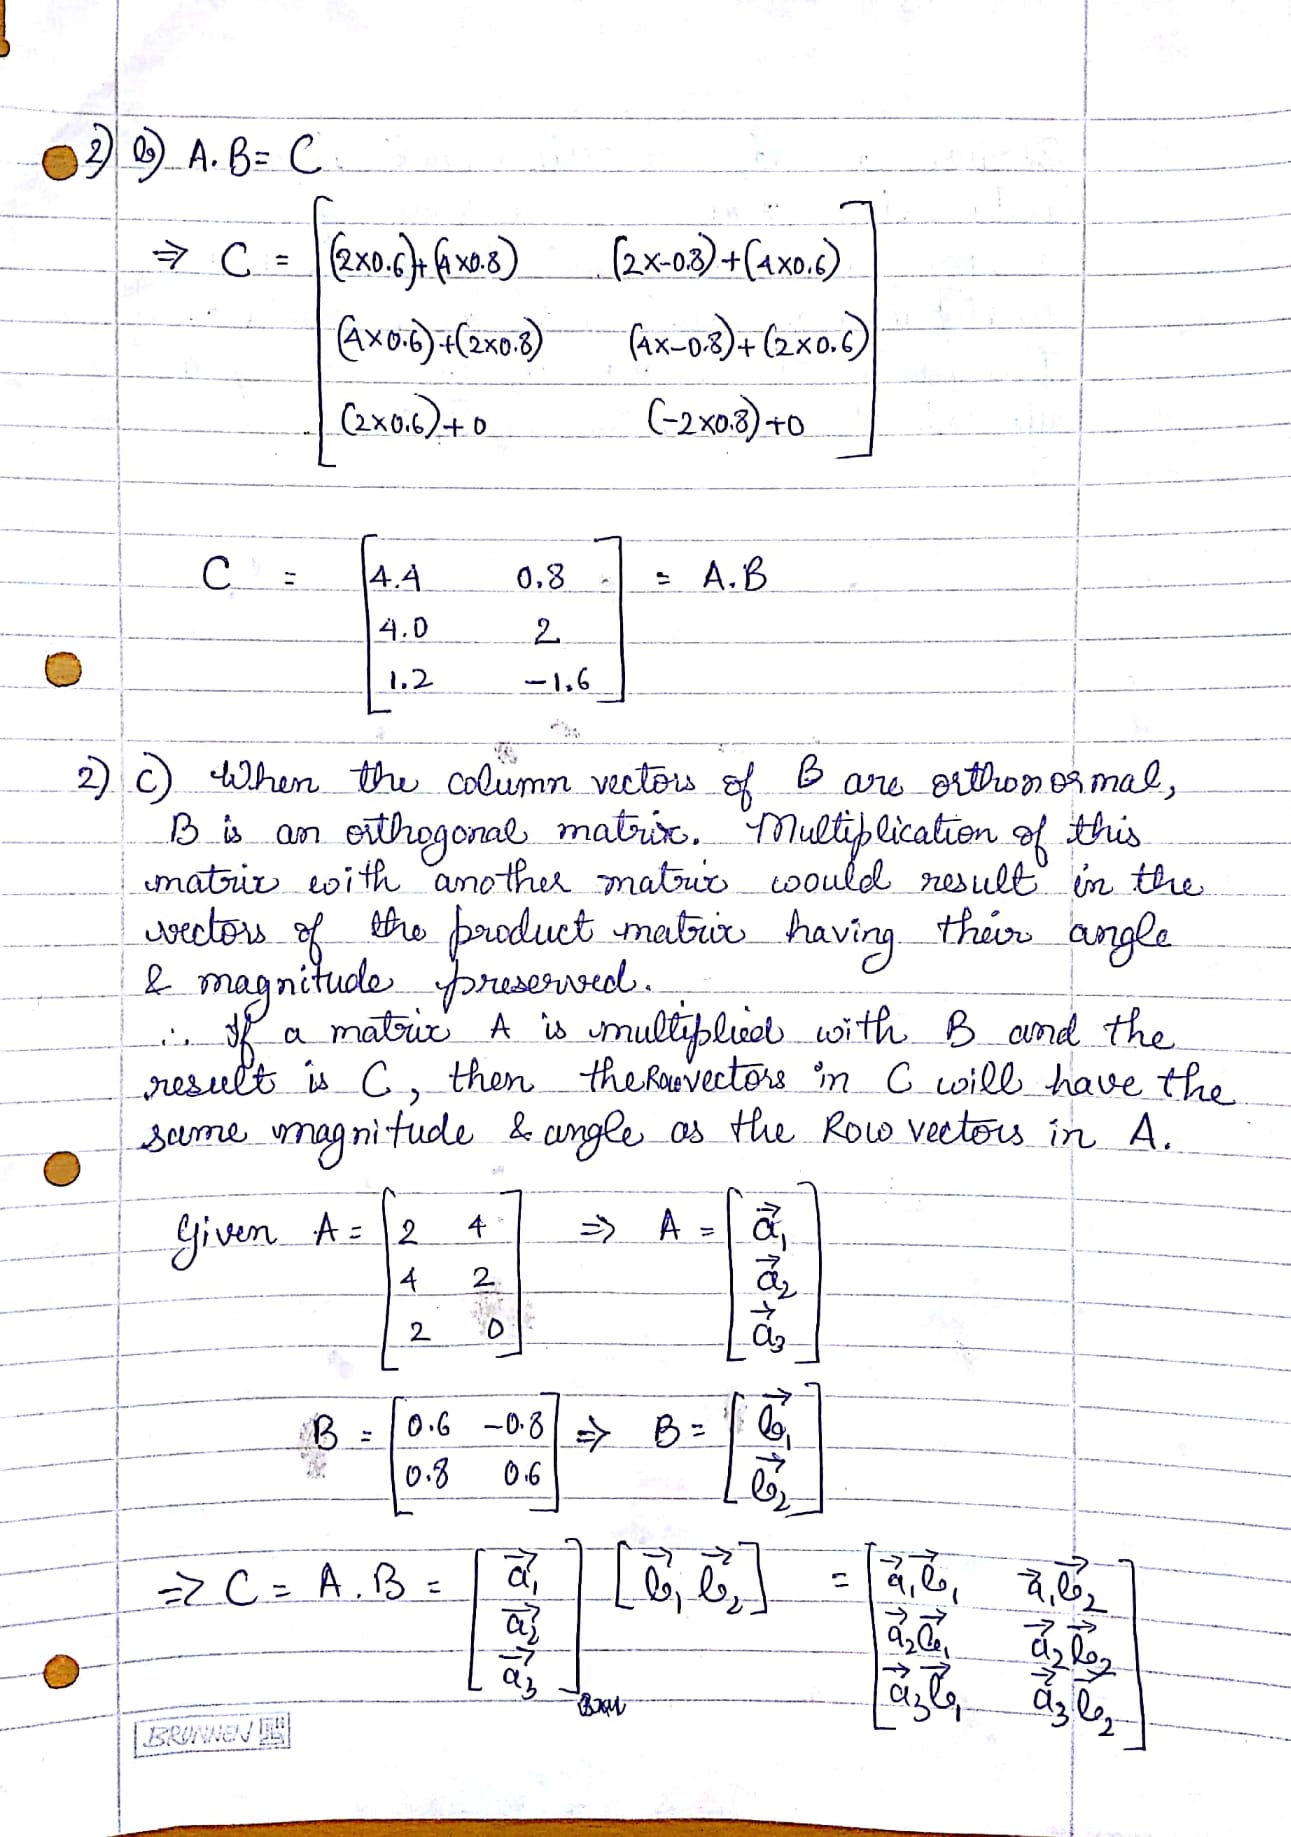 2) b) A.B = C
⇒ C = [(2×0.6)+(4×0.8) (2×-0.8)+(4×0.6)
(4×0.6)+(2×0.8) (4×-0.8)+(2×0.6)
(2×0.6)+0 (-2×0.8)+0]
C = [4.4 0.8 = A.B
4.0 2
1.2 -1.6]
2) c) When the column vectors of B are orthonormal,
B is an orthogonal matrix. Multiplication of this
matrix with another matrix would result in the
vectors of the product matrix having their angle
& magnitude preserved.
∴ If a matrix A is multiplied with B and the
result is C, then the Row vectors in C will have the
same magnitude & angle as the Row vectors in A.
Given A = [2 4 ⇒ A = [a⃗₁
4 2 a⃗₂
2 0] a⃗₃]
B = [0.6 -0.8 ⇒ B = [b⃗₁
0.8 0.6] b⃗₂]
⇒ C = A.B = [a⃗₁ [b⃗₁ b⃗₂] = [a⃗₁b⃗₁ a⃗₁b⃗₂
a⃗₂ a⃗₂b⃗₁ a⃗₂b⃗₂
a⃗₃] a⃗₃b⃗₁ a⃗₃b⃗₂]
BRUNNEN